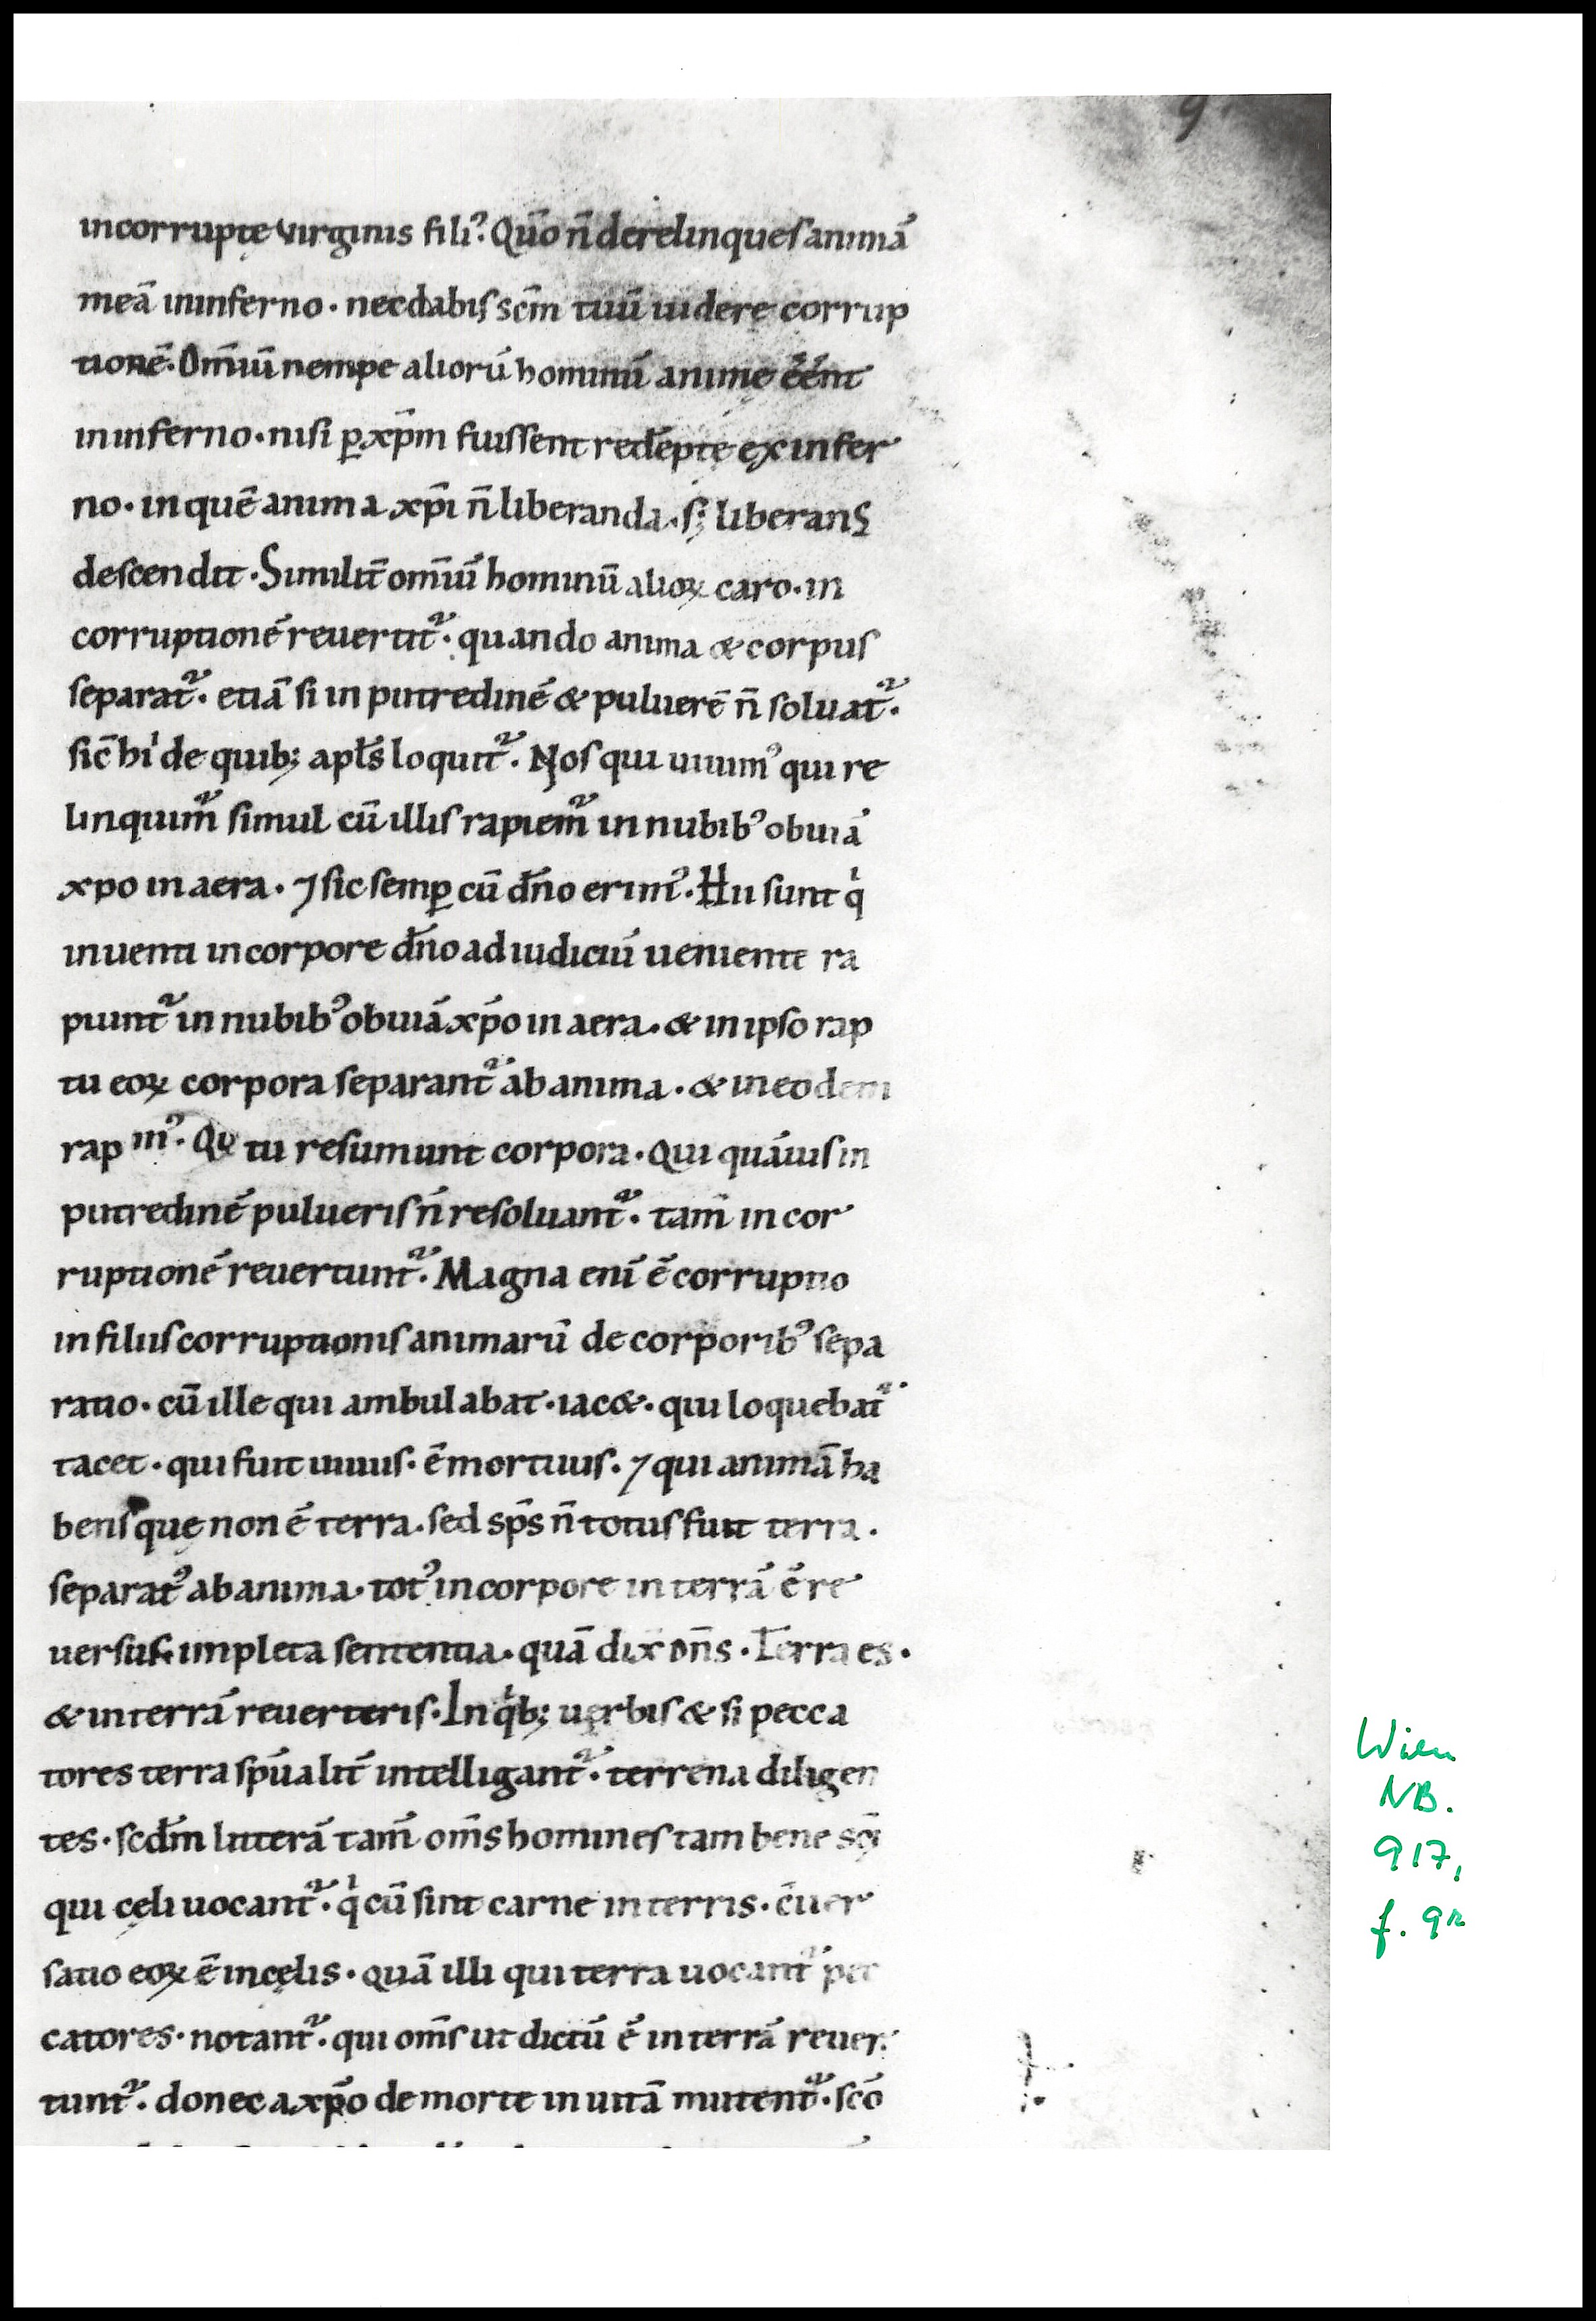 9
incorruptę virginis fili᾽. Qūo n̄ derelinques animā
meā in inferno · nec dabis scm̄ tuū uidere corrup
tionē. Om̄iū nempe aliorū hominū animę ēēnt
in inferno · nisi ꝑ xp̄m fuissent redēptę ex infer
no · in quē anima xp̄i n̄ liberanda · sꝫ liberans
descendit · Similit̄ om̄iū hominū alioꝝ caro · in
corruptionē reuertit᷑ · quando anima & corpus
separat᷑ · etiā si in putredinē & puluerē n̄ soluat᷑ ·
sic̄ hi de quibꝫ apl̄s loquit᷑ · Nos qui uiuim᾽ qui re
linquim᷑ simul cū illis rapiem᷑ in nubib᾽ obuiā
xpo in aera · ⁊ sic semꝑ cū dn̄o erim᾽ · Hii sunt qͥ
inuenti in corpore dn̄o ad iudiciū ueniente ra
piunt᷑ in nubib᾽ obuiā xp̄o in aera · & in ipso rap
tu eoꝝ corpora separant᷑ ab anima · & in eodem
rap tu resumunt corpora · Qui quāuis in
putredinē pulueris n̄ resoluant᷑ · tam̄ in cor
ruptionē reuertunt᷑ · Magna enī ē corruptio
in filiis corruptionis animarū de corporib᾽ sepa
ratio · cū ille qui ambulabat · iac& · qui loquebat᷑
tacet · qui fuit uiuus · ē mortuus · ⁊ qui animā ha
bens quę non ē terra · sed sp̄s n̄ totus fuit terra ·
separat᾽ ab anima · tot᾽ in corpore in terrā ē re
uersus · impleta sententia · quā dix̄ dn̄s · Terra es ·
& in terrā reuerteris · In qͥbꝫ uerbis & si pecca
tores terra sp̄ualit̄ intelligant᷑ · terrena diligen
tes · scdm̄ litterā tam̄ om̄s homines tam bene sc̄i
qui cęli uocant᷑ · qͥ cū sint carne in terris · c̄uer
satio eoꝝ ē in cęlis · quā illi qui terra uocant᷑ pec
catores · notant᷑ · qui om̄s ut dictū ē in terrā reuer
tunt᷑ · donec a xp̄o de morte in uitā mutent᷑ · sc̄o
Wien
NB.
917,
f. 9r